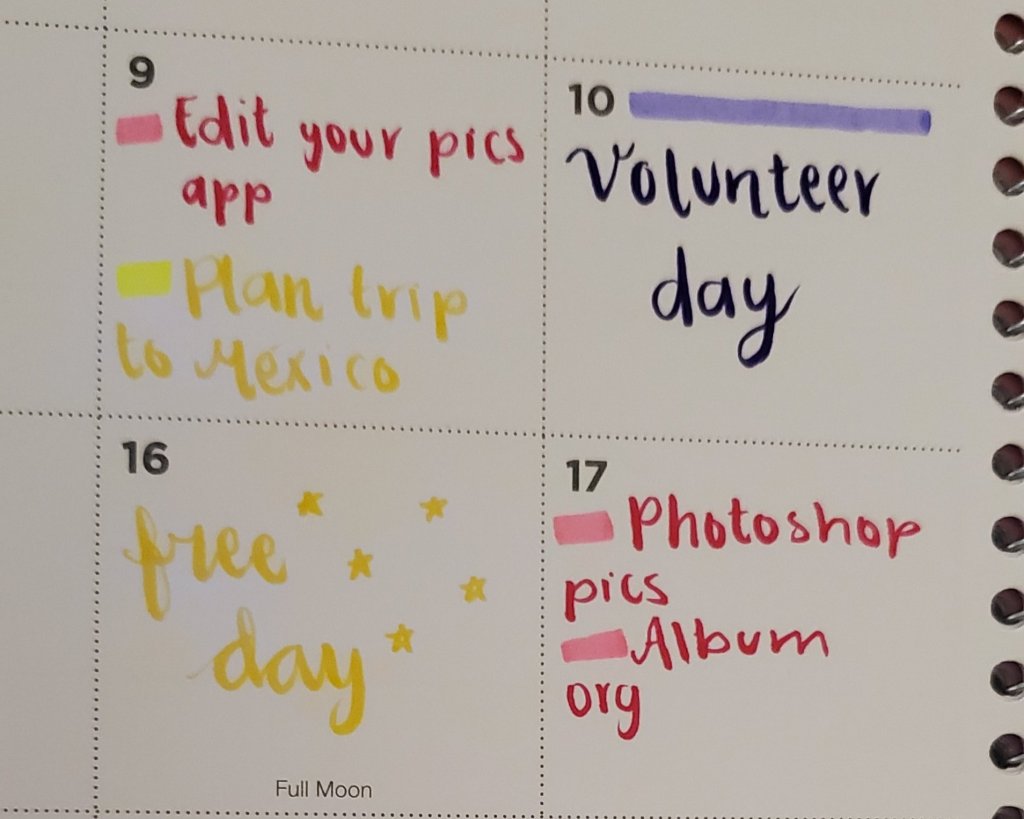 9
Edit your pics
app
Plan trip
to Mexico
10
Volunteer
day
16
free
day
Full Moon
17
Photoshop
pics
Album
org